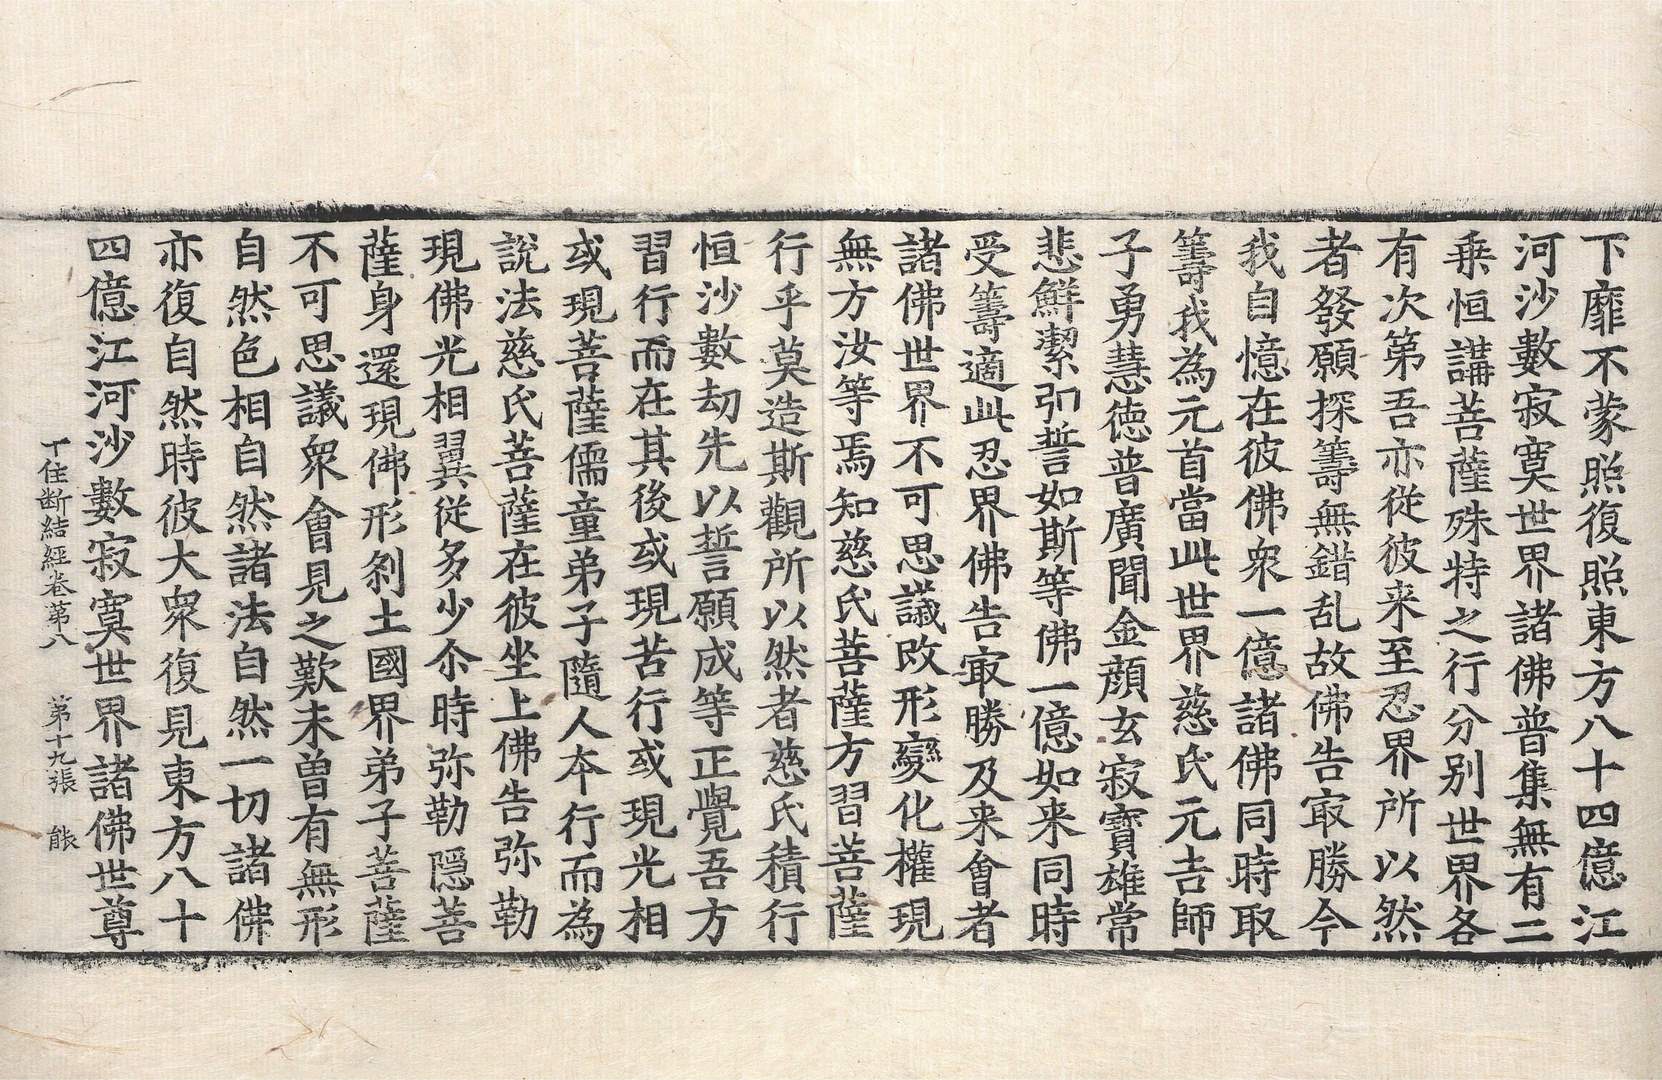 下靡不蒙照復照東方八十四億江
河沙數寂寞世界諸佛普集無有二
乗恒講菩薩殊特之行分別世界各
有次第吾亦從彼来至忍界所以然
者發願探籌無錯乱故佛告㝡勝今
我自憶在彼佛衆一億諸佛同時取
籌我為元首當此世界慈氏元吉師
子勇慧德普廣聞金顔玄寂寶雄常
悲鮮潔弘誓如斯等佛一億如来同時
受籌適此忍界佛告㝡勝及来會者
諸佛世界不可思議改形變化權現
無方汝等焉知慈氏菩薩方習菩薩
行乎莫造斯觀所以然者慈氏積行
恒沙數劫先以誓願成等正覺吾方
習行而在其後或現苦行或現光相
或現菩薩儒童弟子隨人本行而為
說法慈氏菩薩在彼坐上佛告弥勒
現佛光相翼從多少尒時弥勒隱菩
薩身還現佛形刹土國界弟子菩薩
不可思議衆會見之歎未曽有無形
自然色相自然諸法自然一切諸佛
亦復自然時彼大衆復見東方八十
四億江河沙數寂寞世界諸佛世尊
十住断結經卷苐八 苐十九張 能